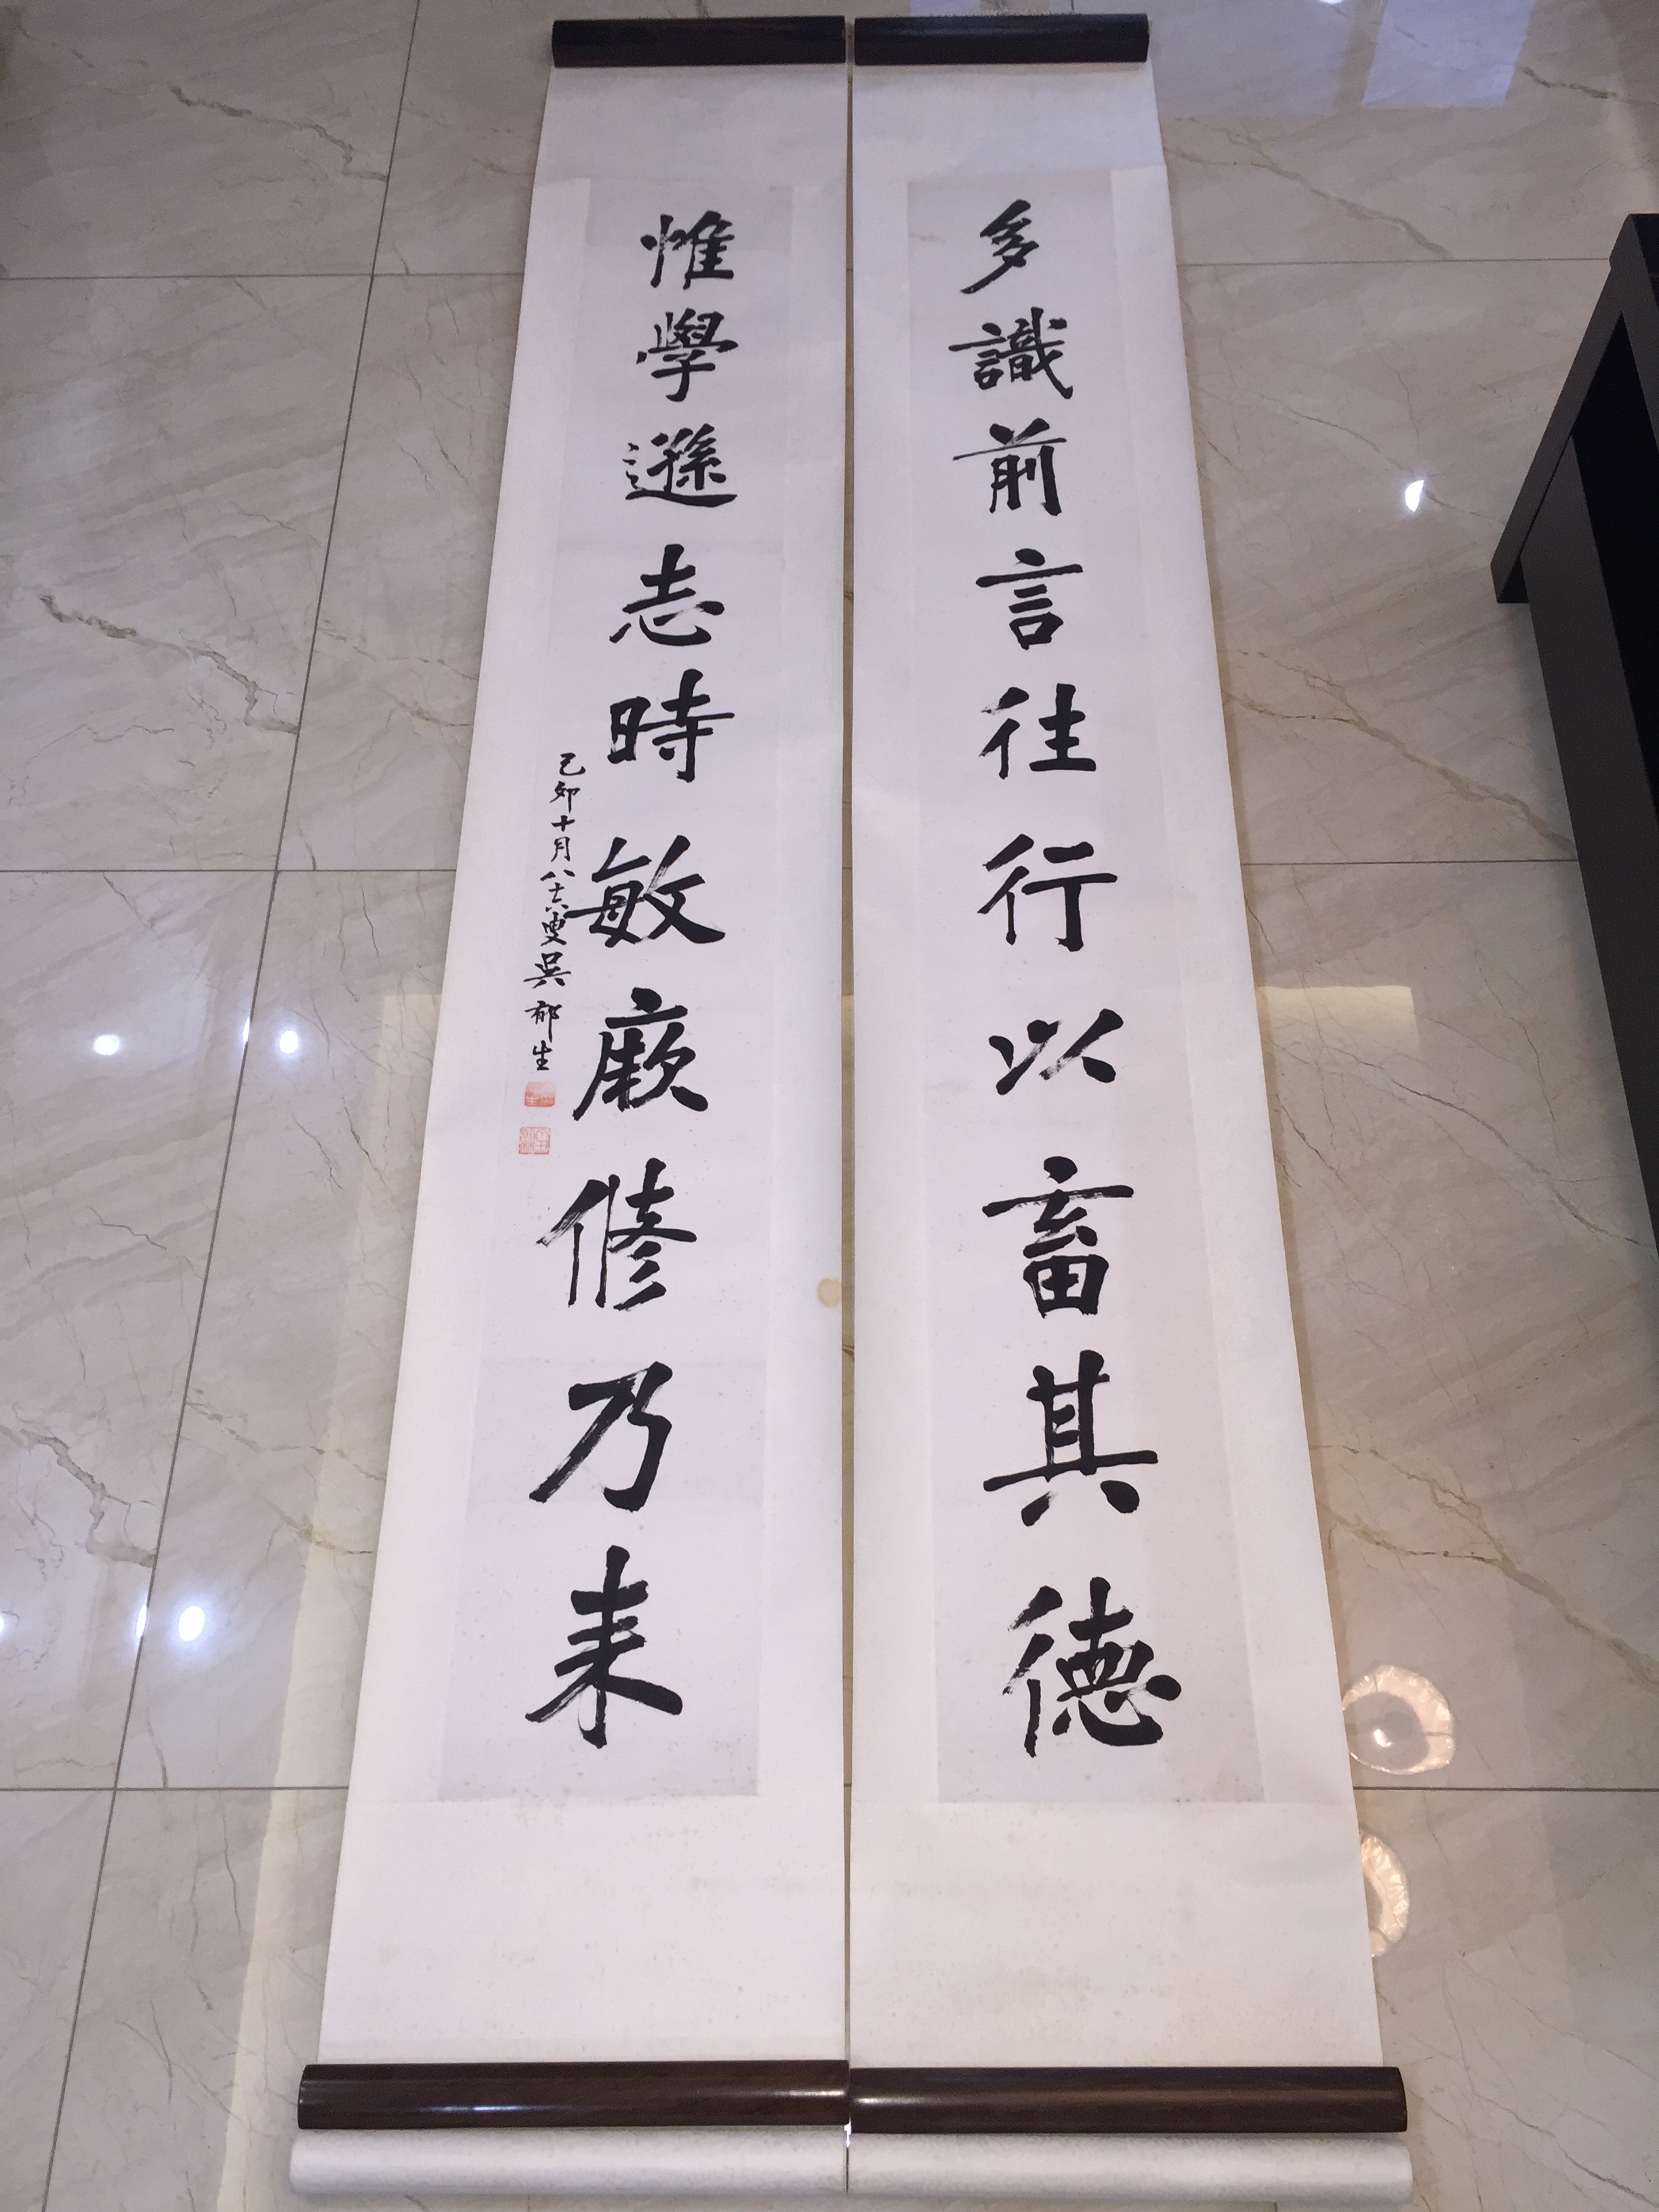 多識前言往行以畜其德
惟學遜志時敏厥修乃来
己卯十月八十六叟吳郁生